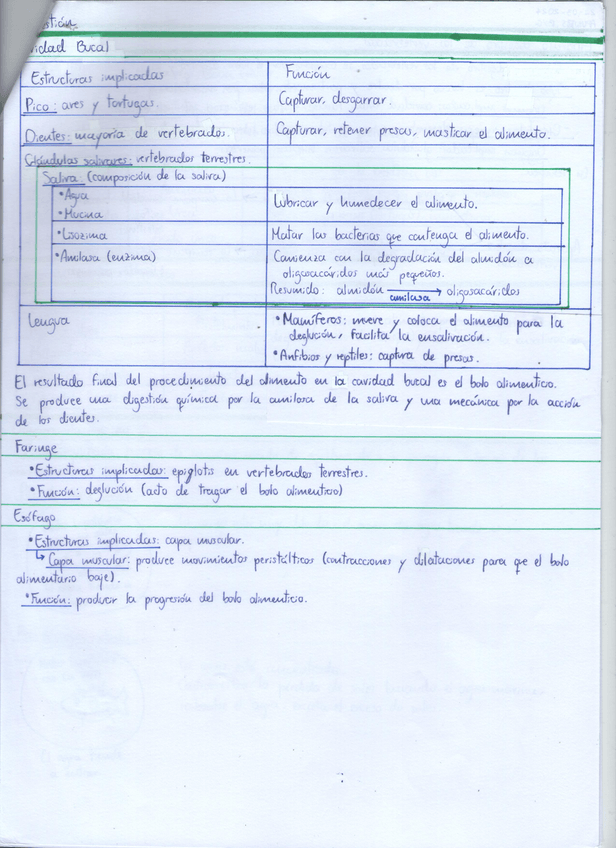 stión
vidad Bucal
Estructuras implicadas
Función
Pico: aves y tortugas.
Capturar, desgarrar.
Dientes: mayoría de vertebrados.
Capturar, retener presas, masticar el alimento.
Glándulas salivares: vertebrados terrestres.
Saliva: (composición de la saliva)
• Agua
• Mucina
Lubricar y humedecer el alimento.
• Lisozima
Matar las bacterias que contenga el alimento.
• Amilasa (enzima)
Comienza con la degradación del almidón a
oligosacáridos más pequeños.
Resumido: almidón → oligosacáridos
amilasa
Lengua
• Mamíferos: mueve y coloca el alimento para la
deglución, facilita la ensalivación.
• Anfibios y reptiles: captura de presas.
El resultado final del procedimiento del alimento en la cavidad bucal es el bolo alimenticio.
Se produce una digestión química por la amilasa de la saliva y una mecánica por la acción
de los dientes.
Faringe
• Estructuras implicadas: epiglotis en vertebrados terrestres.
• Función: deglución (acto de tragar el bolo alimenticio)
Esófago
• Estructuras implicadas: capa muscular.
↳ Capa muscular: produce movimientos peristálticos (contracciones y dilataciones para que el bolo
alimentario baje).
• Función: producir la progresión del bolo alimenticio.